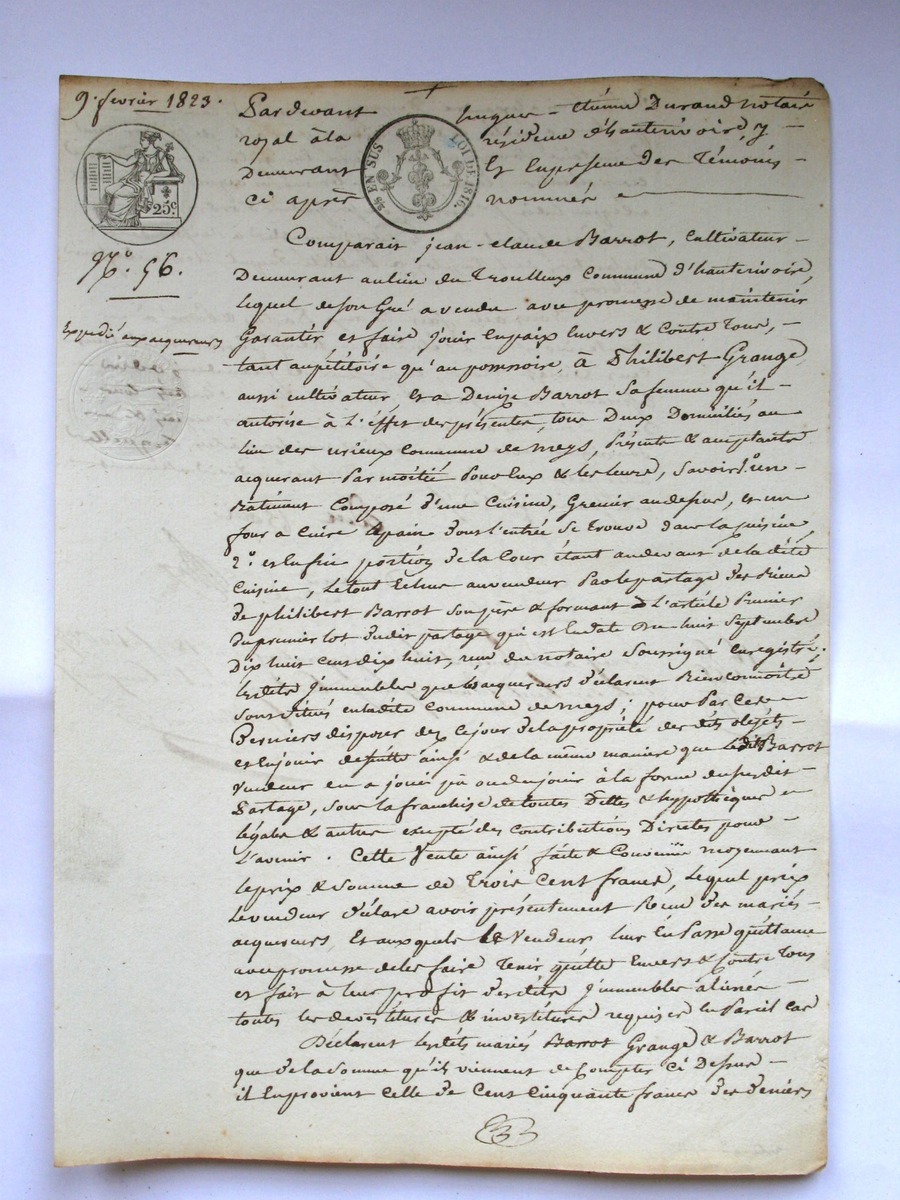 9. fevrier 1823.
Pardevant hugue - étienne Durand notaire
royal à la résidence d'hauterivoire y -
Demeurant Et En presence des Témoins -
ci après nommés
25 EN SUS LOI DE 1816.
25.c
N.o 56.
Expédié aux acquereurs
Comparait jean - claude Barrot, Cultivateur -
Demeurant au lieu du Trouilleux Commune d'hauterivoire,
lequel de son Gré a vendu avec promesse de maintenir
Garantir et faire jouir En paix Envers & Contre Tous, -
tant au pétitoire qu'au possessoire, à Philibert Grange
aussi cultivateur et a Denise Barrot sa femme qu'il -
autorise à L'éffet des présentes, tous Deux Domiciliés au
lieu des commune de meys, Présents & acceptants
acquerant Par moitié Pour Eux & les leurs, savoir 1.o un -
Bâtiment Composé d'une Cuisine, Grenier au dessus, et un
four a Cuire le pain dont L'entrée se Trouve dans la Cuisine,
2.o et Enfin portion de la Cour étant au devant de la dite
Cuisine, Le tout Echu au vendeur Par le partage des Biens
de philibert Barrot son père & formant L'article Premier
du premier lot dudit partage qui est En date du huit Septembre
Dix huit cent dix huit, reçu du notaire soussigné Enregistré;
lesdits jmmeubles que les acquereurs déclarent Bien connoitre
sont situés en ladite Commune de meys; pour Par Ces -
Derniers disposer dez ce jour de la propriété des dits objets -
et En jouir de suitte ainsi & de la même maniere que ledit Barrot
Vendeur en a joui pû ou du jouir à la forme du susdit -
Partage, sous la franchise de toutes Dettes & hypothèques -
légales & autres excepté des Contributions Directes pour -
L'avenir. Cette Vente ainsi faite & Convenue moyennant
le prix & somme de Trois Cent francs, Lequel prix
Le vendeur déclare avoir présentement Reçu des mariés -
acquereurs, Et auxquels le Vendeur leur En Passe quittance
avec promesse de les faire Tenir quitte Envers & Contre Tous
et fait à leur profit desdits jmmeubles aliénés -
toutes les devestitures & investitures requises En Pareil cas
Déclarent lesdits mariés Barrot Grange & Barrot
que de la somme qu'ils viennent de Compter Ci Dessus -
il En provient Celle de Cent Cinquante francs des deniers